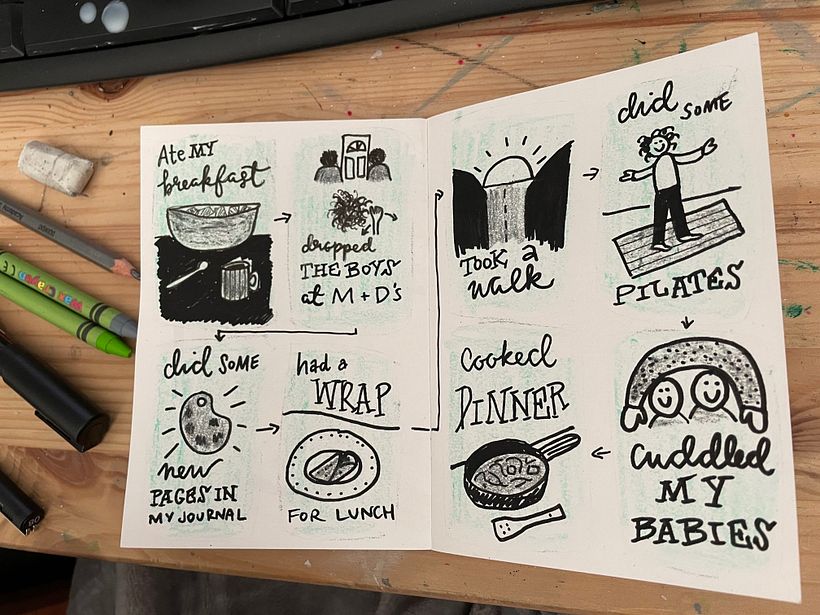 Ate MY
breakfast
dropped
THE BOYS
at M + D's
did SOME
new
PAGES IN
MY JOURNAL
had a
WRAP
FOR LUNCH
TOOK a
walk
did SOME
PILATES
cuddled
MY
BABIES
Cooked
DINNER
Wax Crayon